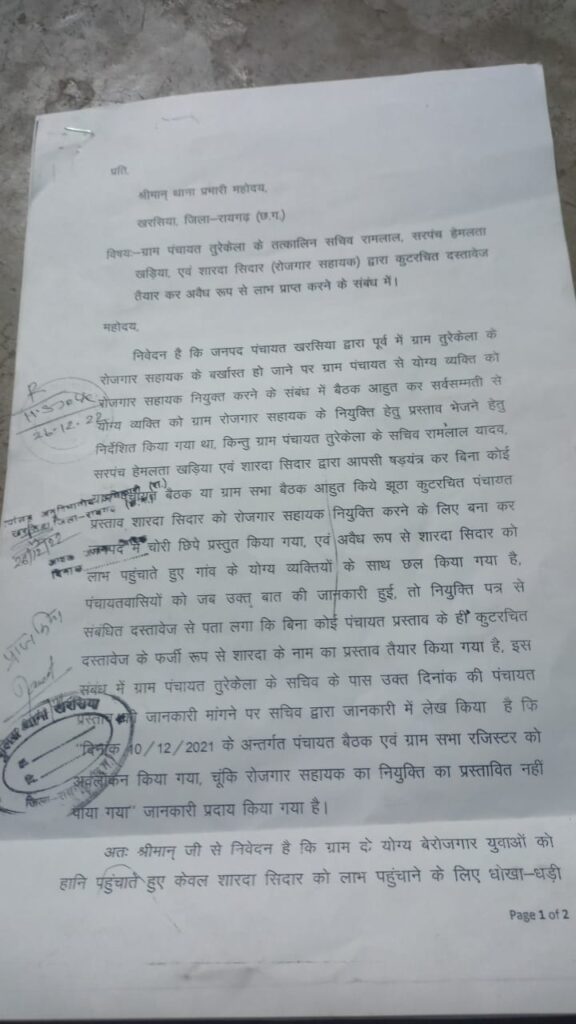 प्रति,
श्रीमान् थाना प्रभारी महोदय,
खरसिया, जिला–रायगढ़ (छ.ग.)
विषयः–ग्राम पंचायत तुरेकेला के तत्कालिन सचिव रामलाल, सरपंच हेमलता
खड़िया, एवं शारदा सिदार (रोजगार सहायक) द्वारा कुटरचित दस्तावेज
तैयार कर अवैध रूप से लाभ प्राप्त करने के संबंध में।
महोदय,
निवेदन है कि जनपद पंचायत खरसिया द्वारा पूर्व में ग्राम तुरेकेला के
रोजगार सहायक के बर्खास्त हो जाने पर ग्राम पंचायत से योग्य व्यक्ति को
रोजगार सहायक नियुक्त करने के संबंध में बैठक आहुत कर सर्वसम्मती से
योग्य व्यक्ति को ग्राम रोजगार सहायक के नियुक्ति हेतु प्रस्ताव भेजने हेतु
निर्देशित किया गया था, किन्तु ग्राम पंचायत तुरेकेला के सचिव रामलाल यादव,
सरपंच हेमलता खड़िया एवं शारदा सिदार द्वारा आपसी षड़यंत्र कर बिना कोई
बैठक या ग्राम सभा बैठक आहुत किये झूठा कुटरचित पंचायत
प्रस्ताव शारदा सिदार को रोजगार सहायक नियुक्ति करने के लिए बना कर
जनपद में चोरी छिपे प्रस्तुत किया गया, एवं अवैध रूप से शारदा सिदार को
लाभ पहुंचाते हुए गांव के योग्य व्यक्तियों के साथ छल किया गया है,
पंचायतवासियों को जब उक्त बात की जानकारी हुई, तो नियुक्ति पत्र से
संबंधित दस्तावेज से पता लगा कि बिना कोई पंचायत प्रस्ताव के ही कुटरचित
दस्तावेज के फर्जी रूप से शारदा के नाम का प्रस्ताव तैयार किया गया है, इस
संबंध में ग्राम पंचायत तुरेकेला के सचिव के पास उक्त दिनांक की पंचायत
जानकारी मांगने पर सचिव द्वारा जानकारी में लेख किया है कि
"दिनांक 10/12/2021 के अन्तर्गत पंचायत बैठक एवं ग्राम सभा रजिस्टर को
अवलोकन किया गया, चूंकि रोजगार सहायक का नियुक्ति का प्रस्तावित नहीं
पाया गया" जानकारी प्रदाय किया गया है।
अतः श्रीमान् जी से निवेदन है कि ग्राम के योग्य बेरोजगार युवाओं को
हानि पहुंचाते हुए केवल शारदा सिदार को लाभ पहुंचाने के लिए धोखा–धड़ी
Page 1 of 2
26-12-22
26/12/22